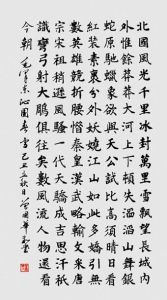 北國風光千里冰封萬里雪飄望長城內
外惟餘莽莽大河上下頓失滔滔山舞銀
蛇原馳蠟象欲與天公試比高須晴日看
紅裝素裹分外妖嬈江山如此多嬌引無
數英雄競折腰惜秦皇漢武略輸文采唐
宗宋祖稍遜風騷一代天驕成吉思汗祇
識彎弓射大鵰俱往矣數風流人物還看
今朝 毛澤東沁園春雪 己丑秋